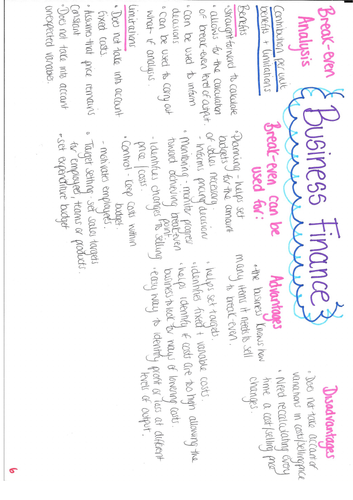 Business Finance
Break-even
Analysis
Contribution per unit
benefits + limitations
Benefits
• Straightforward to calculate
• allows for the calculation
of break-even level of output
• can be used to inform
decisions
• can be used to carry out
what-if analysis
Limitations
• Does not take into account
fixed costs.
• Assumes that price remains
constant
• Does not take into account
unexpected variable.
Break-even can be
used for:
• Planning - helps set
budgets for the amount
of sales necessary
- informs pricing decisions
• Monitoring - monitor progress
toward achieving break-even
point.
- identifies changes to selling
price/costs.
• Control - keep costs within
budget.
- motivates employees.
• Target setting - set sales targets
for employees, teams or products.
• set expenditure budget
Advantages
• the business knows how
many items it needs to sell
to break-even.
• helps set targets
• identifies fixed + variable costs.
• helps identify if costs are too high allowing the
business to look for ways of lowering costs.
• easy way to identify profit or loss at different
levels of output.
Disadvantages
• Does not take account of
variations in costs/selling price
• Need recalculating every
time a cost/selling price
changes.
6